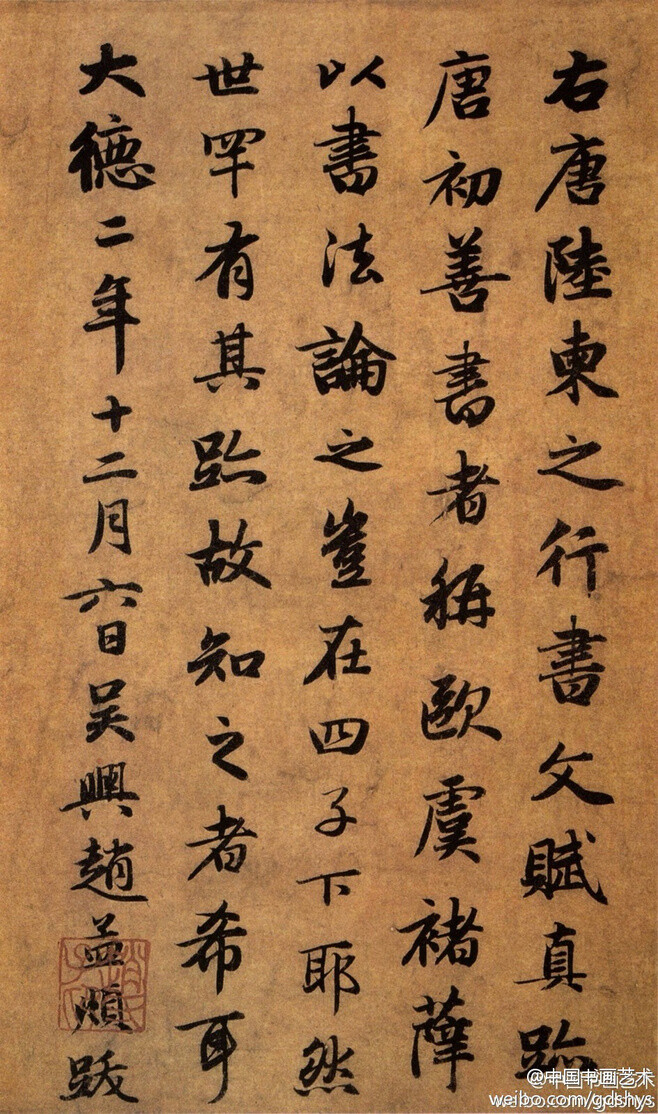 右唐陸柬之行書文賦真跡
唐初善書者稱歐虞褚薛
以書法論之豈在四子下耶然
世罕有其跡故知之者希耳
大德二年十二月六日吳興趙孟頫跋
@中国书画艺术
weibo.com/gdshys